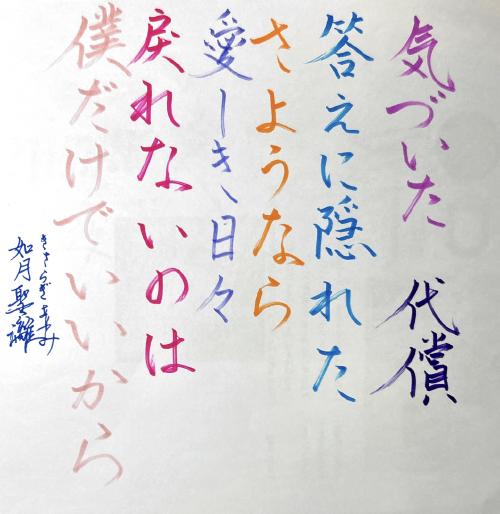 気づいた 代償
答えに隠れた
さようなら
愛しき日々
戻れないのは
僕だけでいいから
きさらぎ
如月聖